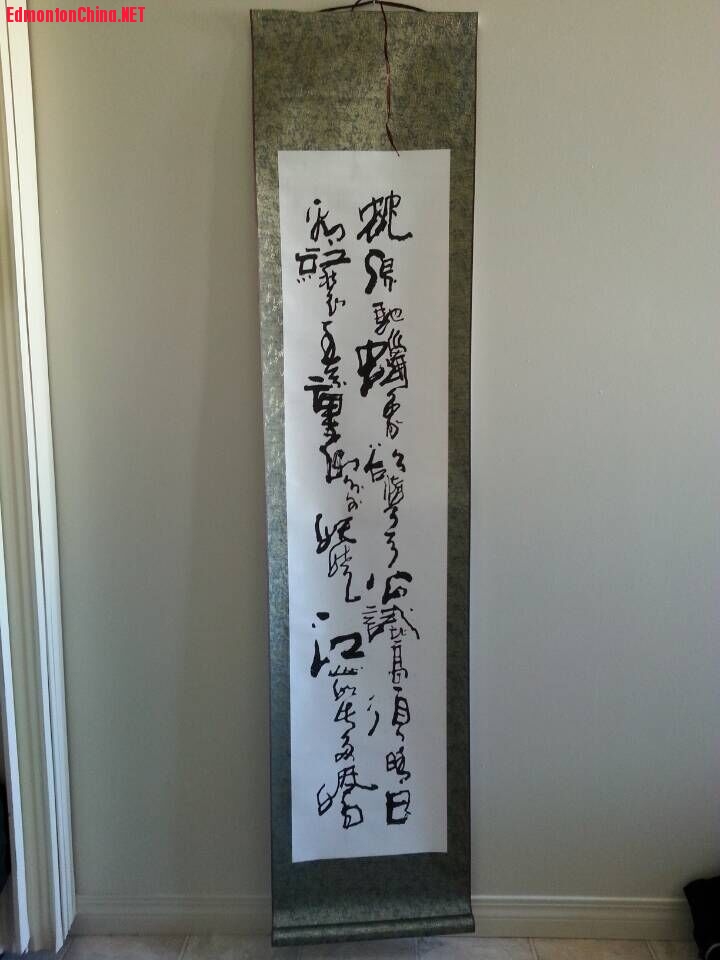 EdmontonChina.NET
蛇原馳蠟象欲與天公試比高須晴日
看紅裝素裹分外妖嬈江山如此多嬌